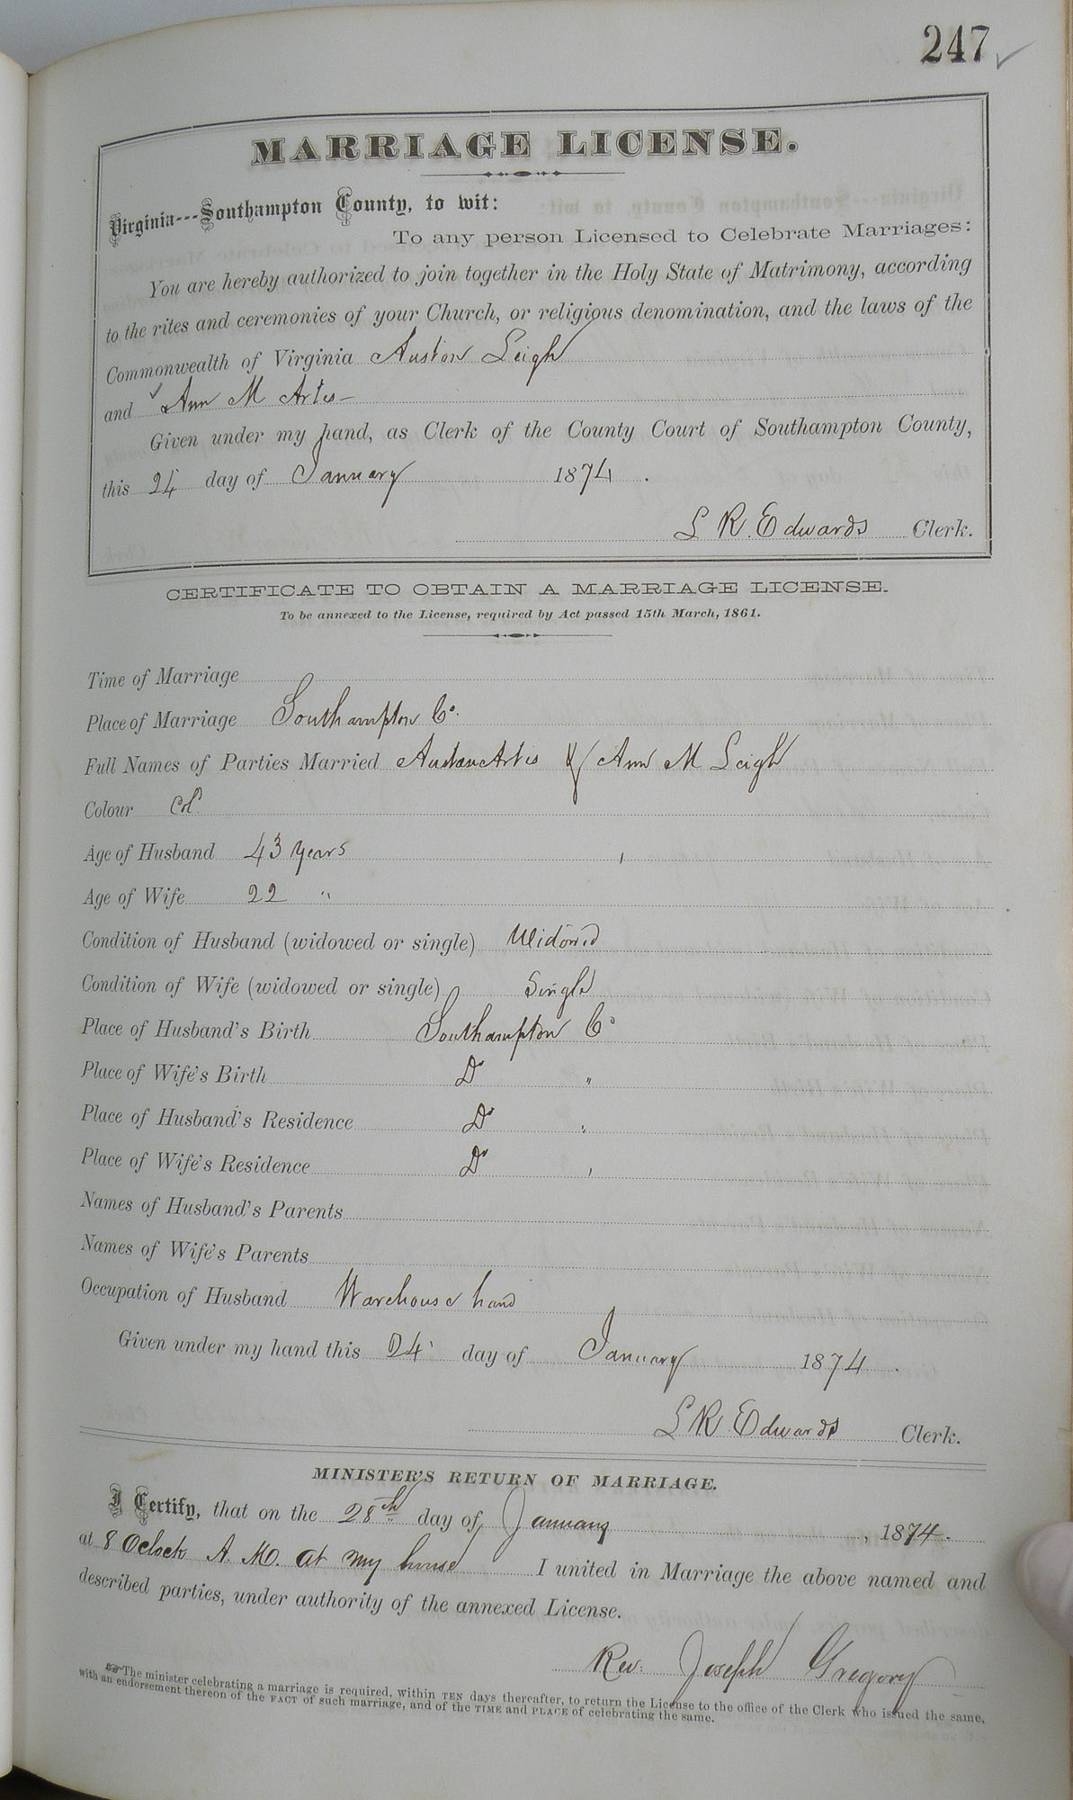 247 ✓
MARRIAGE LICENSE.
Virginia---Southampton County, to wit:
To any person Licensed to Celebrate Marriages:
You are hereby authorized to join together in the Holy State of Matrimony, according
to the rites and ceremonies of your Church, or religious denomination, and the laws of the
Commonwealth of Virginia Auston Leigh
and Ann M Artis
Given under my hand, as Clerk of the County Court of Southampton County,
this 24 day of January 1874.
L R. Edwards Clerk.
CERTIFICATE TO OBTAIN A MARRIAGE LICENSE.
To be annexed to the License, required by Act passed 15th March, 1861.
Time of Marriage
Place of Marriage Southampton Co.
Full Names of Parties Married Austan Artis & Ann M Leigh
Colour Cold
Age of Husband 43 years
Age of Wife 22 "
Condition of Husband (widowed or single) Widowed
Condition of Wife (widowed or single) Single
Place of Husband's Birth Southampton Co
Place of Wife's Birth Do "
Place of Husband's Residence Do "
Place of Wife's Residence Do "
Names of Husband's Parents
Names of Wife's Parents
Occupation of Husband Warehouse hand
Given under my hand this 24 day of January 1874.
L R Edwards Clerk.
MINISTER'S RETURN OF MARRIAGE.
I Certify, that on the 28th day of January, 1874.
at 8 Oclock A. M. at my house I united in Marriage the above named and
described parties, under authority of the annexed License.
Rev. Joseph Gregory
☞ The minister celebrating a marriage is required, within TEN days thereafter, to return the License to the office of the Clerk who issued the same,
with an endorsement thereon of the FACT of such marriage, and of the TIME and PLACE of celebrating the same.